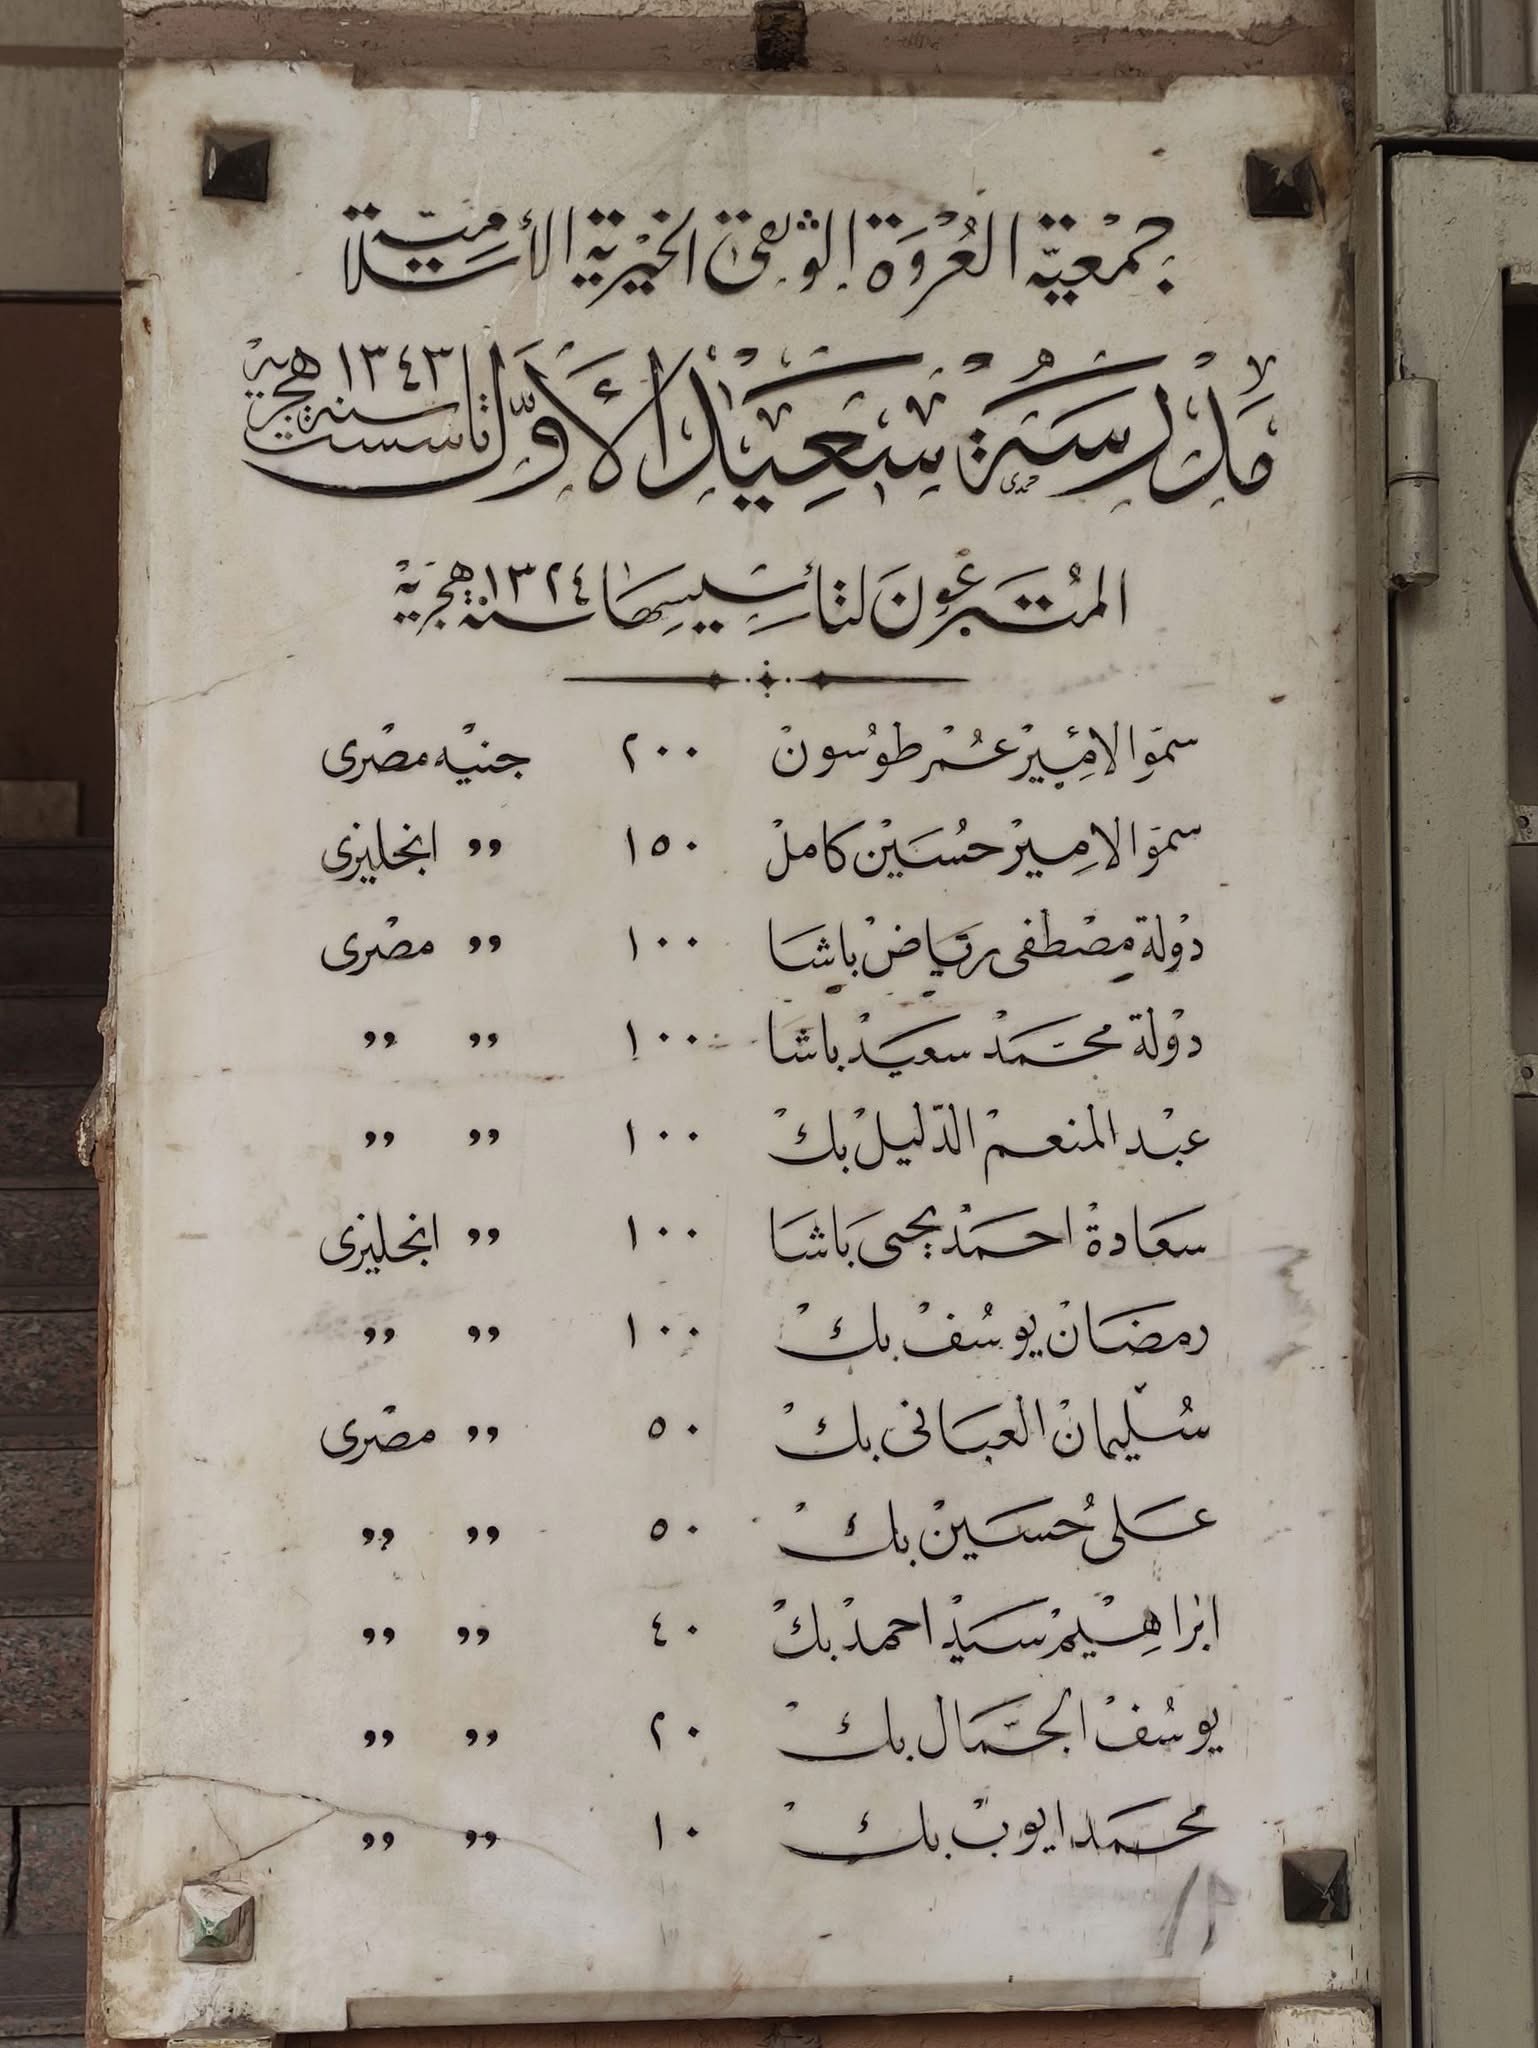 جمعيّة العُروَة الوثقىٰ الخيريّة الأسلاميّة
مَدرسَة سَعيد الأوّل تأسست سنة ١٣٤٣ هجريه
حمدى
المُتبَرعُون لتأسِيسِهَا سنة ١٣٢٤ هجريّة
سموّ الامِير عُمر طوسُون ٢٠٠ جنيه مصرى
سموّ الامِير حُسَين كامل ١٥٠ ,, انجليزى
دولة مصطفى رياض باشا ١٠٠ ,, مصرى
دولة محمّد سعيد باشا ١٠٠ ,, ,,
عبد المنعم الدّليل بك ١٠٠ ,, ,,
سعادة احمد يحيى باشا ١٠٠ ,, انجليزى
رمضان يوسُف بك ١٠٠ ,, ,,
سُليمان العبانى بك ٥٠ ,, مصرى
على حُسين بك ٥٠ ,, ,,
ابراهيم سيد احمد بك ٤٠ ,, ,,
يوسُف الجمّال بك ٢٠ ,, ,,
محمد ايوب بك ١٠ ,, ,,